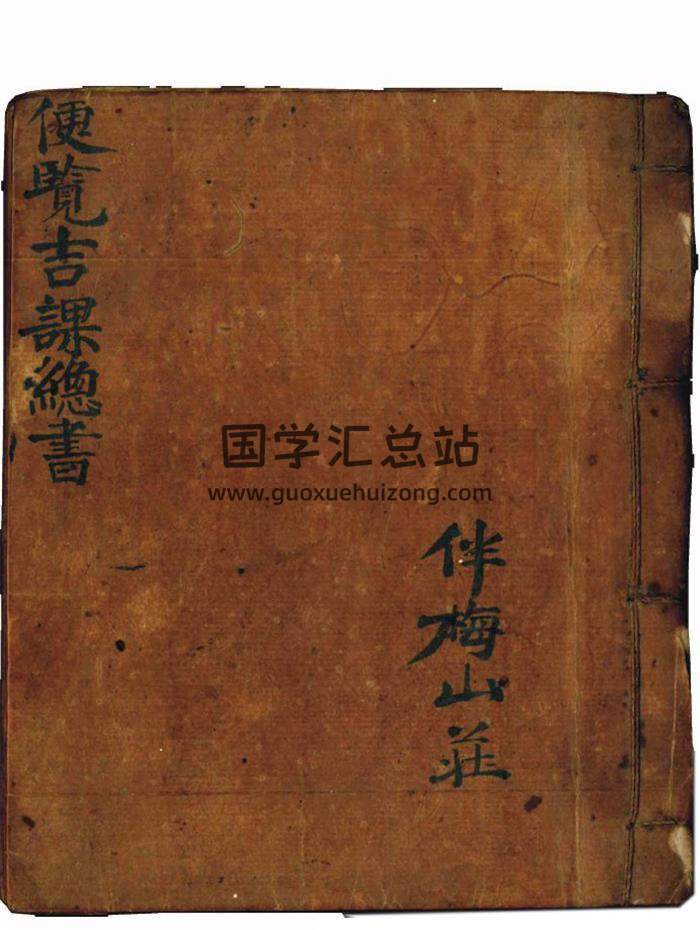 便覽吉課總書
伴梅山莊
国学汇总站
www.guoxuehuizong.com